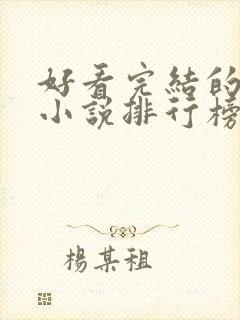 好看完結的
小說排行榜
楊某祖